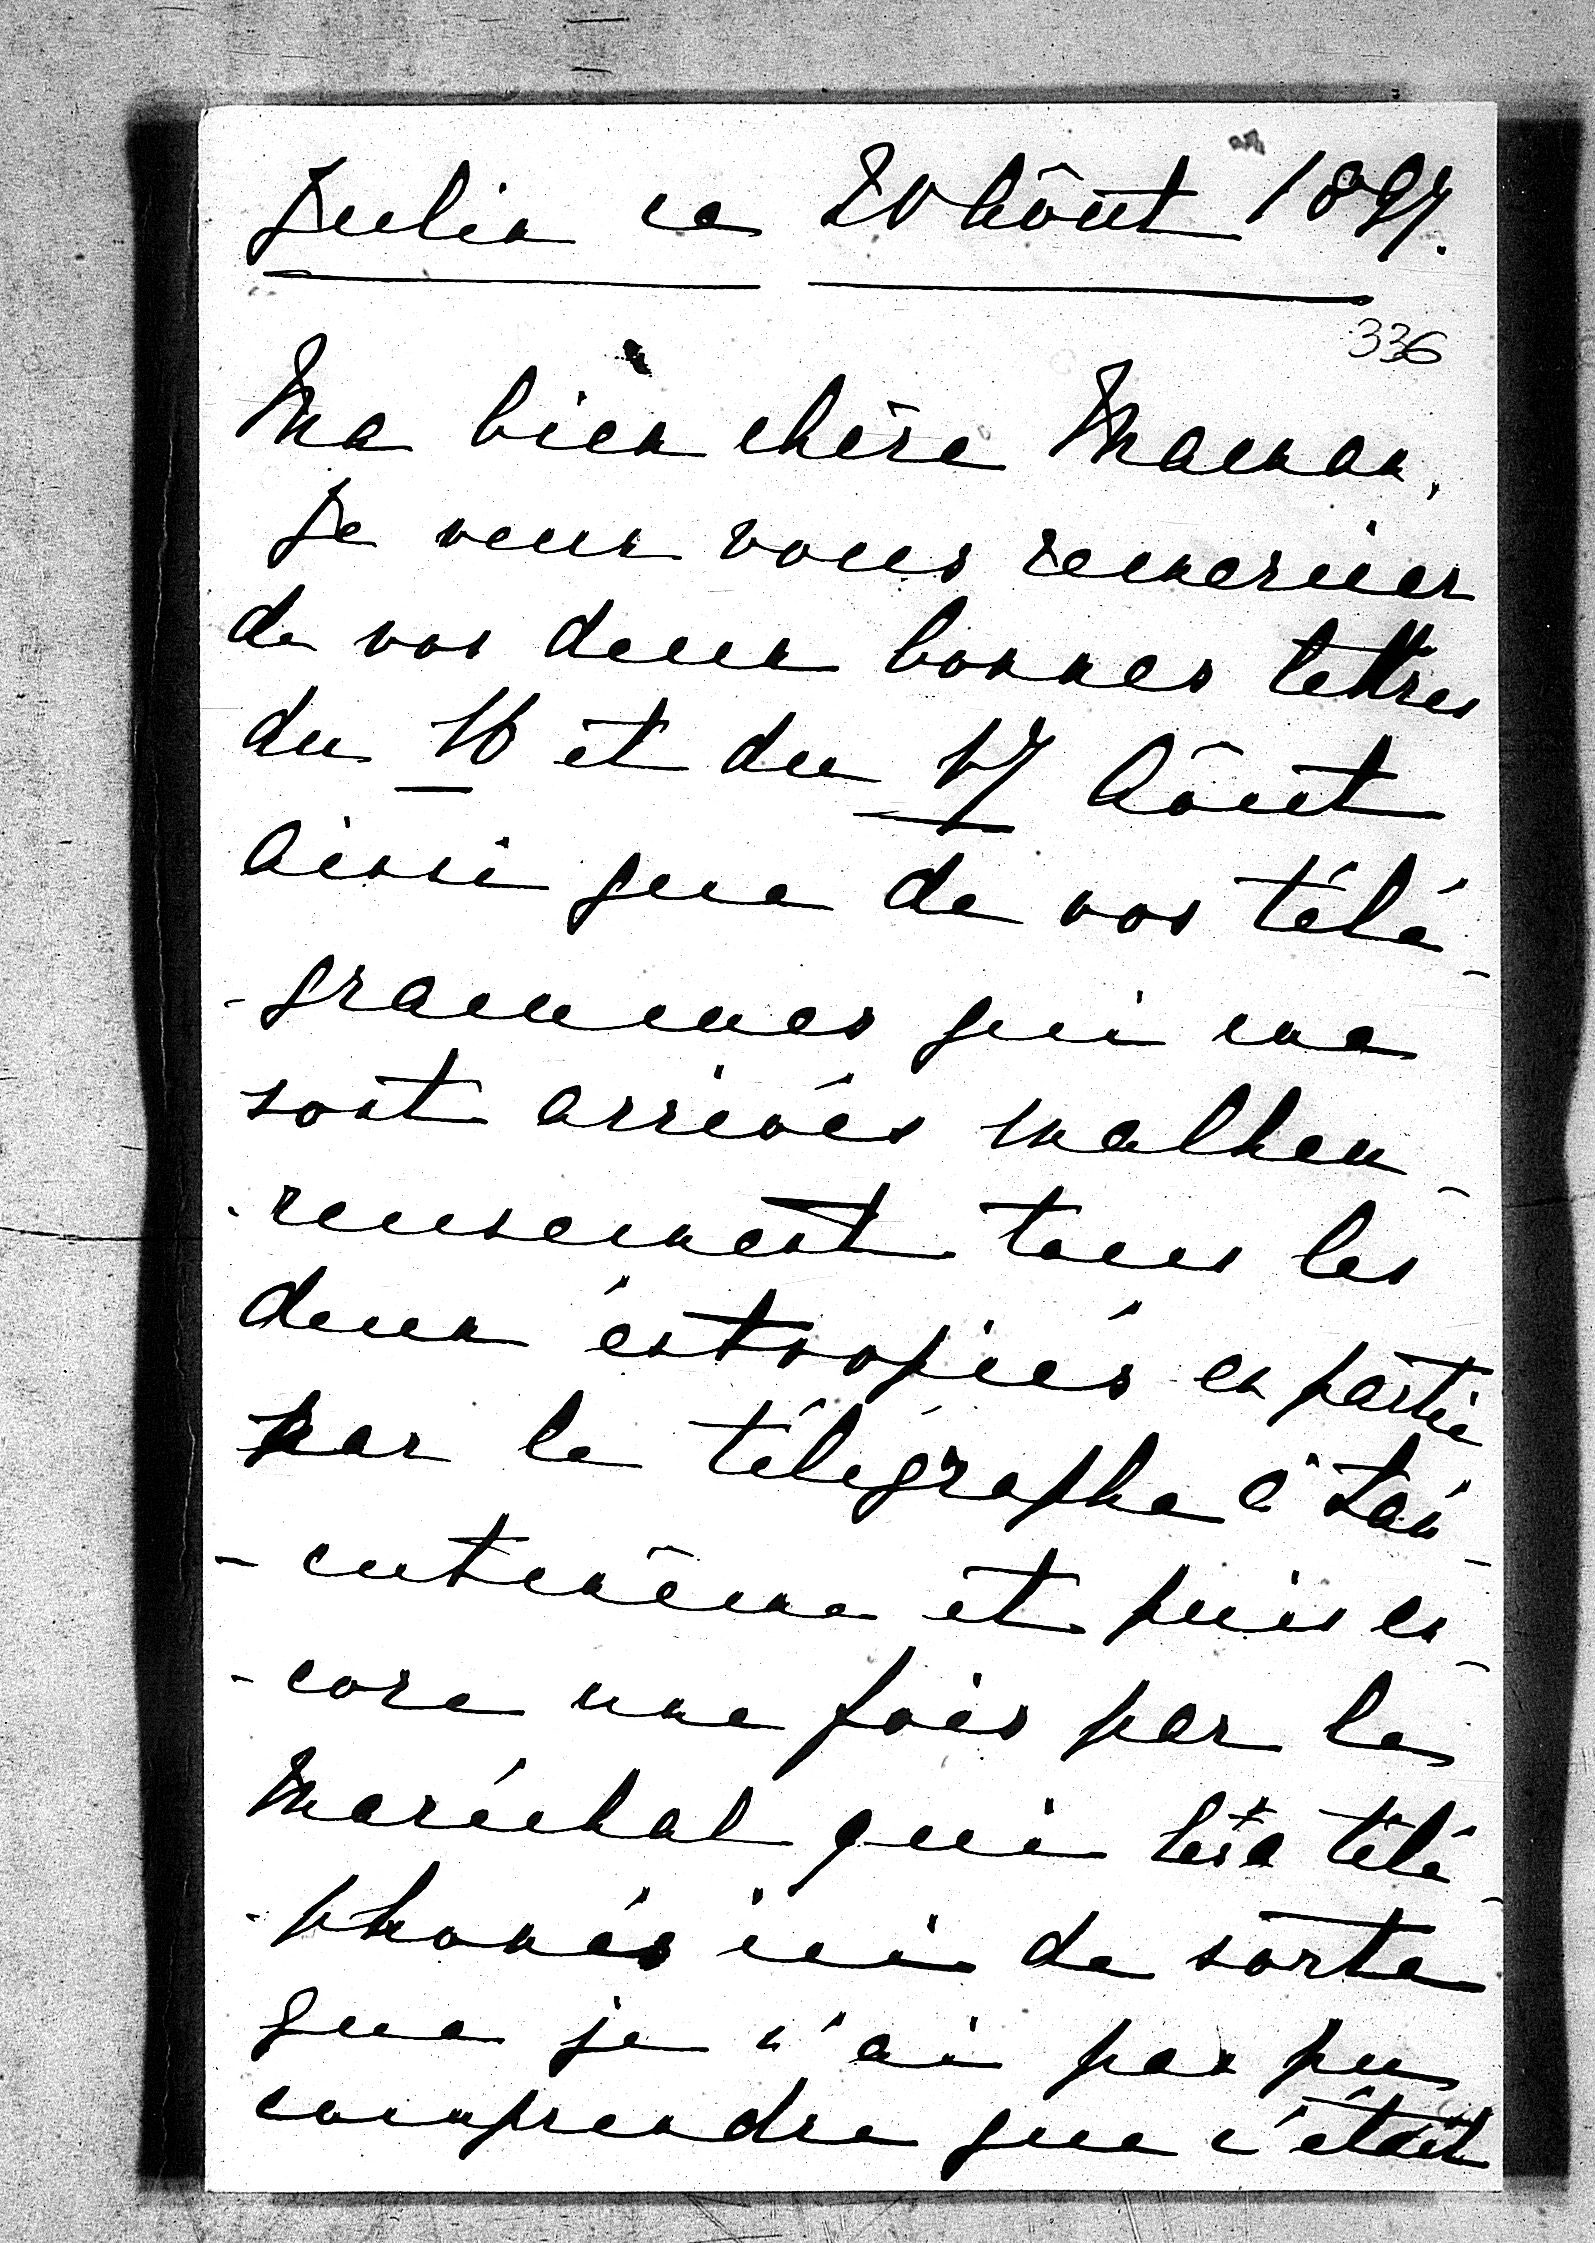 Julin ce 20 Aôut 1897.
336
Ma bien chère Maman,
Je veux vous remercier
de vos deux bonnes lettres
du 16 et du 17 Aôut
ainsi que de vos télé-
-grammes qui me
sont arrivés malheu-
-reusement tous les
deux éstropiés en partie
par le télégraphe à
et puis en-
-core une fois par le
Maréchal qui les a télé-
-phonés ici de sorte
que je n'ai pas pu
comprendre que c'était